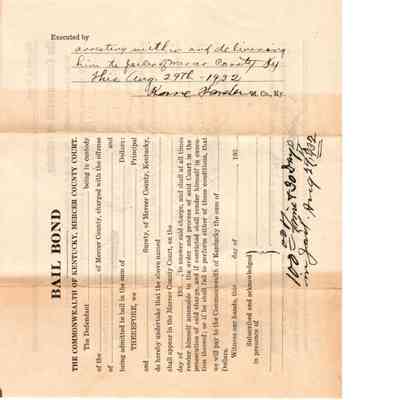 Executed by
arresting within and delivering
him to Jailer of Mercer County Ky
this Aug. 29th - 1932
M. Co., Ky.
BAIL BOND
THE COMMONWEALTH OF KENTUCKY, MERCER COUNTY COURT.
The Defendant being in custody
of the of Mercer County, charged with the offense
of and
being admitted to bail in the sum of Dollars:
THEREFORE, we Principal
and Surety, of Mercer County, Kentucky,
do hereby undertake that the above named
shall appear in the Mercer County Court, on the
day of 193 , to answer said charge, and shall at all times
render himself amenable to the order and process of said Court in the
prosecution of said charge, and if convicted shall render himself in execu-
tion thereof; or if he shall fail to perform either of these conditions, that
we will pay to the Commonwealth of Kentucky the sum of
Dollars.
Witness our hands, this day of , 193
Subscribed and acknowledged
in presence of
100 fine & 30 Days
in Jail, Aug 29 1932